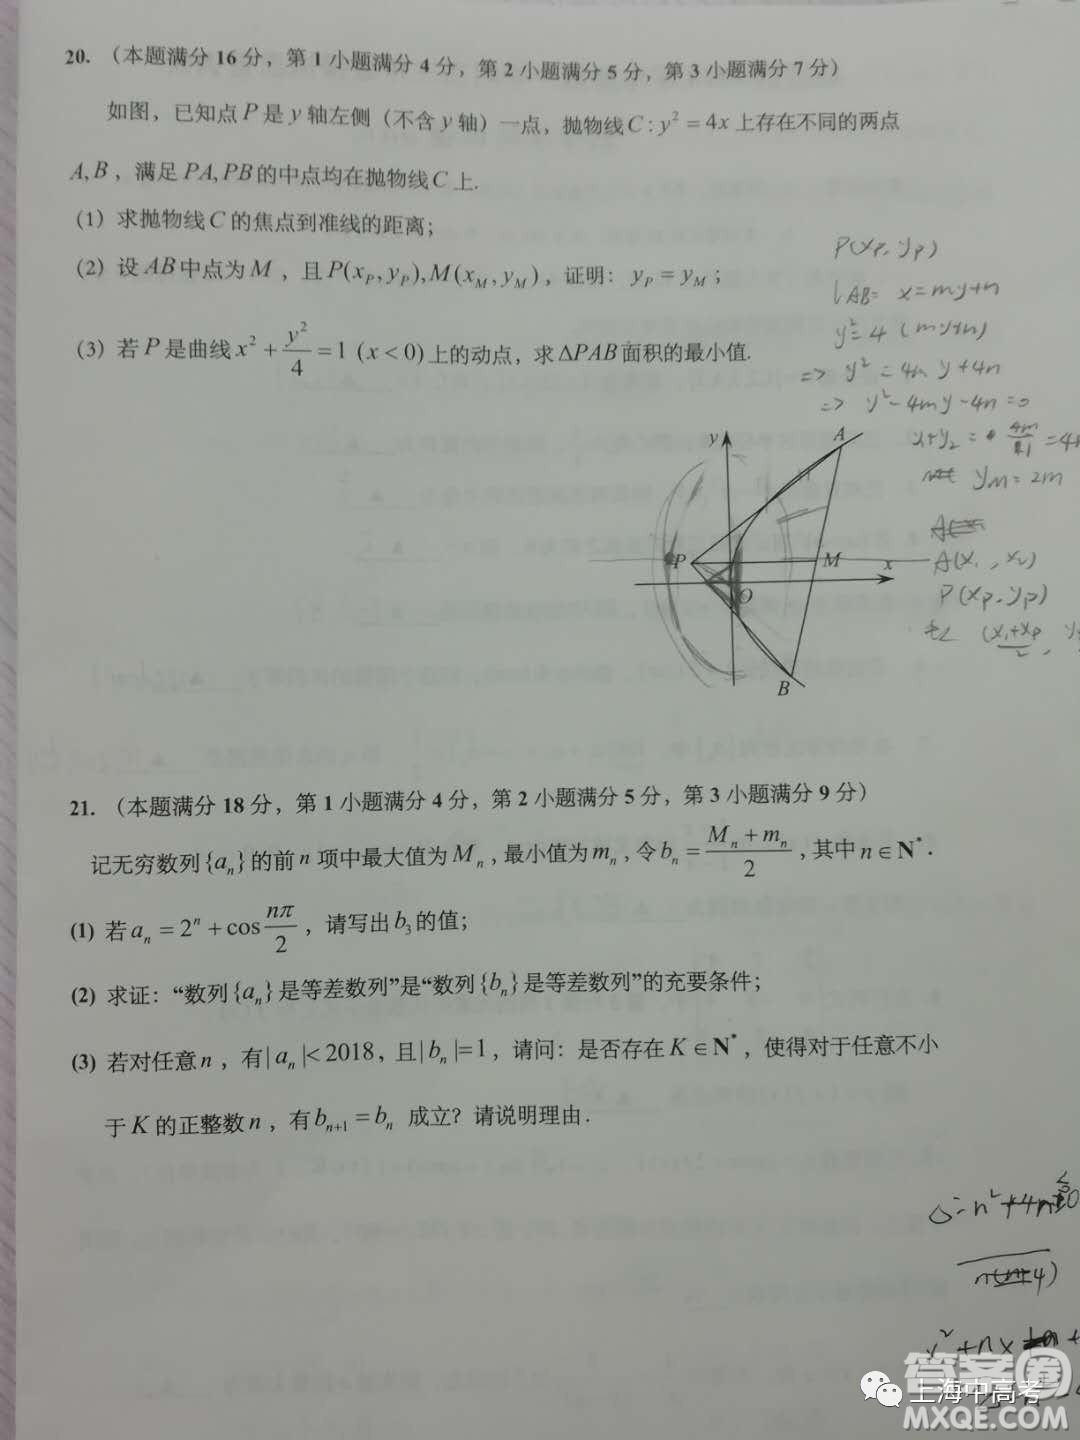 20. （本题满分 16 分，第 1 小题满分 4 分，第 2 小题满分 5 分，第 3 小题满分 7 分）
如图，已知点 P 是 y 轴左侧（不含 y 轴）一点，抛物线 C : y² = 4x 上存在不同的两点
A, B ，满足 PA, PB 的中点均在抛物线 C 上.
(1) 求抛物线 C 的焦点到准线的距离；
(2) 设 AB 中点为 M ，且 P(x_P, y_P), M(x_M, y_M) ，证明：y_P = y_M ；
(3) 若 P 是曲线 x² + y²/4 = 1 (x < 0) 上的动点，求 ΔPAB 面积的最小值.
P(xp, yp)
lAB= x = my+n
y² = 4 (my+n)
=> y² = 4m y + 4n
=> y² - 4my - 4n = 0
yM = 2m
A(x₁, x₂)
P(xp, yp)
y
A
P
M
x
O
B
21. （本题满分 18 分，第 1 小题满分 4 分，第 2 小题满分 5 分，第 3 小题满分 9 分）
记无穷数列 {a_n} 的前 n 项中最大值为 M_n , 最小值为 m_n , 令 b_n = (M_n + m_n)/2 , 其中 n ∈ N* .
(1) 若 a_n = 2ⁿ + cos nπ/2 ，请写出 b₃ 的值；
(2) 求证：“数列 {a_n} 是等差数列”是“数列 {b_n} 是等差数列”的充要条件；
(3) 若对任意 n ，有 | a_n |< 2018，且 | b_n |=1，请问：是否存在 K ∈ N* ，使得对于任意不小
于 K 的正整数 n ，有 b_{n+1} = b_n 成立？请说明理由 .
上海中高考
答案圈
MXQE.COM